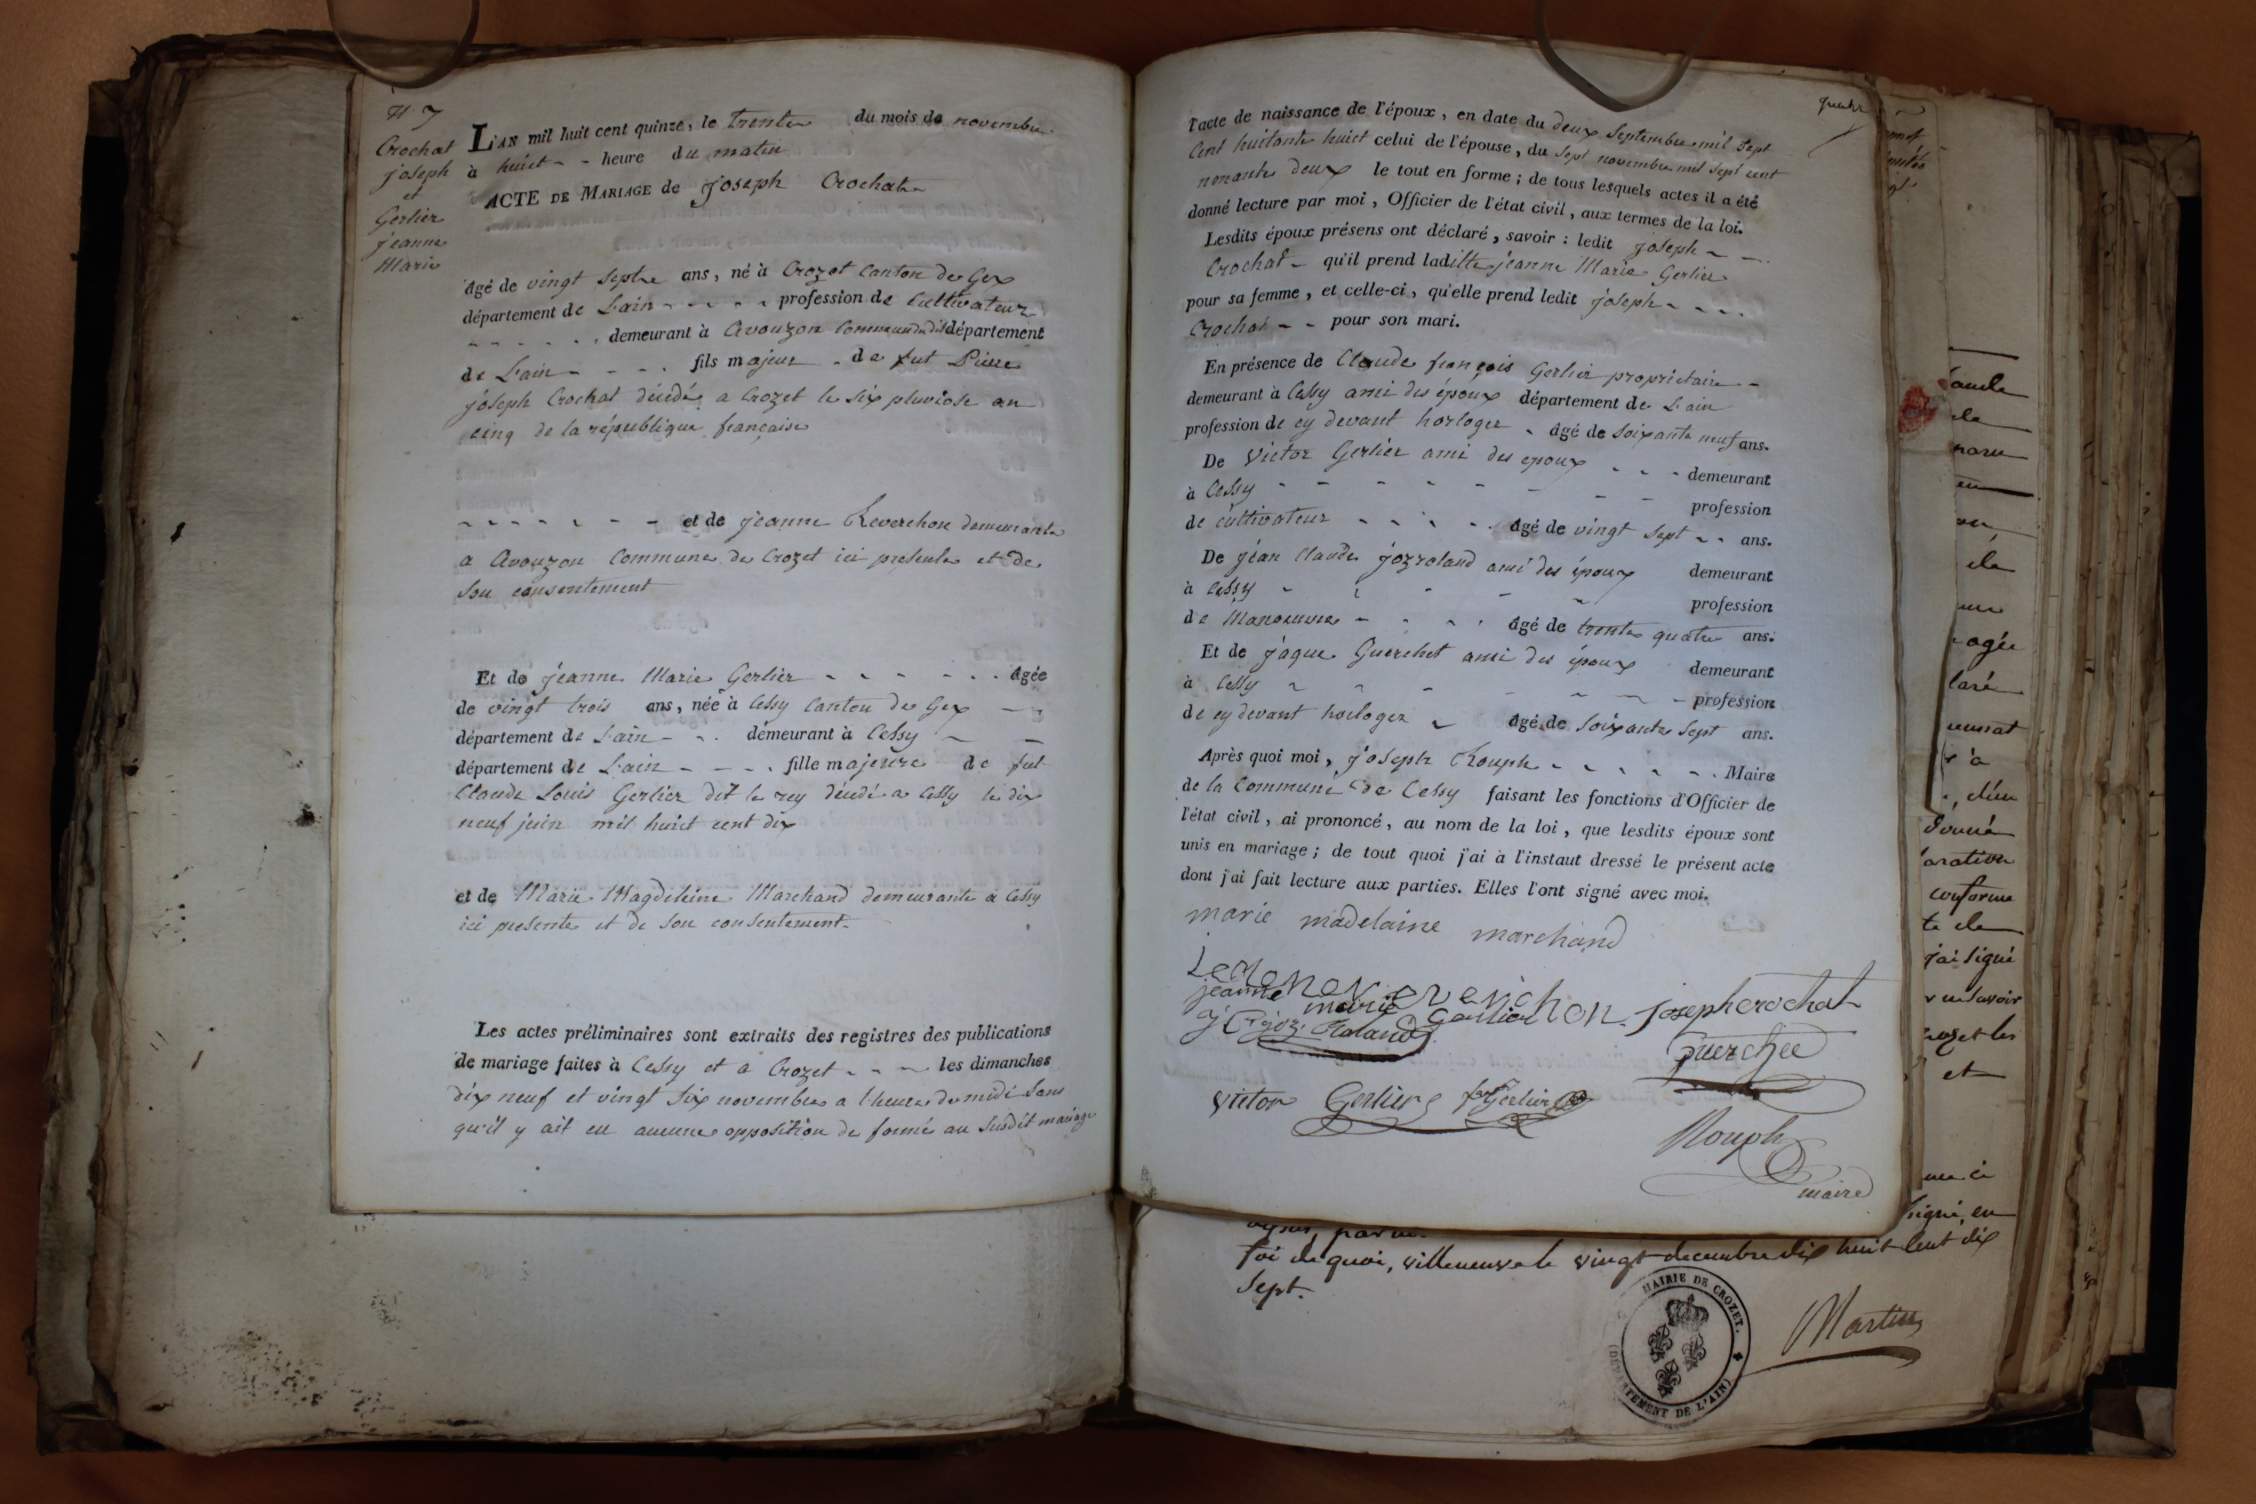 N 7
Crochat
joseph
et
Gerlier
jeanne
Marie
L'AN mil huit cent quinze, le trente du mois de novembre
à huit - - heure du matin
ACTE DE MARIAGE de joseph Crochat
âgé de vingt sept ans, né à Crozet canton de Gex
département de L'ain - - - - profession de Cultivateur
- - - - - demeurant à avouzon commune dudit département
de L'ain - - - . fils majeur - de fut Pierre
joseph Crochat décédé a Crozet le six pluviose an
cinq de la république française
- - - - - - - et de jeanne Reverchon demeurante
a avouzon commune de Crozet ici presente et de
son consentement
Et de jeanne Marie Gerlier - - - - - - âgée
de vingt trois ans, née à Cessy Canton de Gex - -
département de L'ain - - . demeurant à Cessy - -
département de L'ain - - - . fille majeure de fut
Claude Louis Gerlier dit le rey décédé a Cessy le dix
neuf juin mil huit cent dix
et de Marie Magdeleine Marchand demeurante a Cessy
ici presente et de son consentement.
Les actes préliminaires sont extraits des registres des publications
de mariage faites à Cessy et a Crozet - - - les dimanches
dix neuf et vingt six novembre a l'heure de midi sans
qu'il y ait eu aucune opposition de formé au susdit mariage
l'acte de naissance de l'époux, en date du deux Septembre mil Sept
Cent huitante huict celui de l'épouse, du sept novembre mil sept cent
nonante deux le tout en forme; de tous lesquels actes il a été
donné lecture par moi, Officier de l'état civil, aux termes de la loi.
Lesdits époux présens ont déclaré, savoir: ledit joseph - -
Crochat - qu'il prend ladite jeanne Marie Gerlier
pour sa femme, et celle-ci, qu'elle prend ledit joseph - - - .
Crochat - - pour son mari.
En présence de Claude françois Gerlier propriétaire -
demeurant à Cessy ami des époux département de L'ain
profession de cy devant horloger - âgé de soixante neuf ans.
De Victor Gerlier ami des époux - - - demeurant
à Cessy - - - - - - - - profession
de cultivateur - - - - - âgé de vingt sept - - ans.
De jean Claude jozroland ami des époux demeurant
à Cessy - - - - - profession
de Manoeuvre - - - - âgé de trente quatre ans.
Et de jaque Guerchet ami des époux demeurant
à Cessy - - - - - - - profession
de cy devant horloger - âgé de soixante sept ans.
Après quoi moi, joseph Rouph - - - - - - Maire
de la Commune de Cessy faisant les fonctions d'Officier de
l'état civil, ai prononcé, au nom de la loi, que lesdits époux sont
unis en mariage; de tout quoi j'ai à l'instant dressé le présent acte
dont j'ai fait lecture aux parties. Elles l'ont signé avec moi.
marie madelaine marchand
jeanne marie Gerlier
joseph crochat
joz Roland
Guerchet
victor Gerlier
Gerlier
Rouph
maire
foi de quoi, villeneuve le vingt decembre dix huit cent dix
sept.
MAIRIE DE CROZET.
(DÉPARTEMENT DE L'AIN)
Martin
agée
laré
donné
aration
conforme
te de
j'ai signé
en savoir
et
signé, en